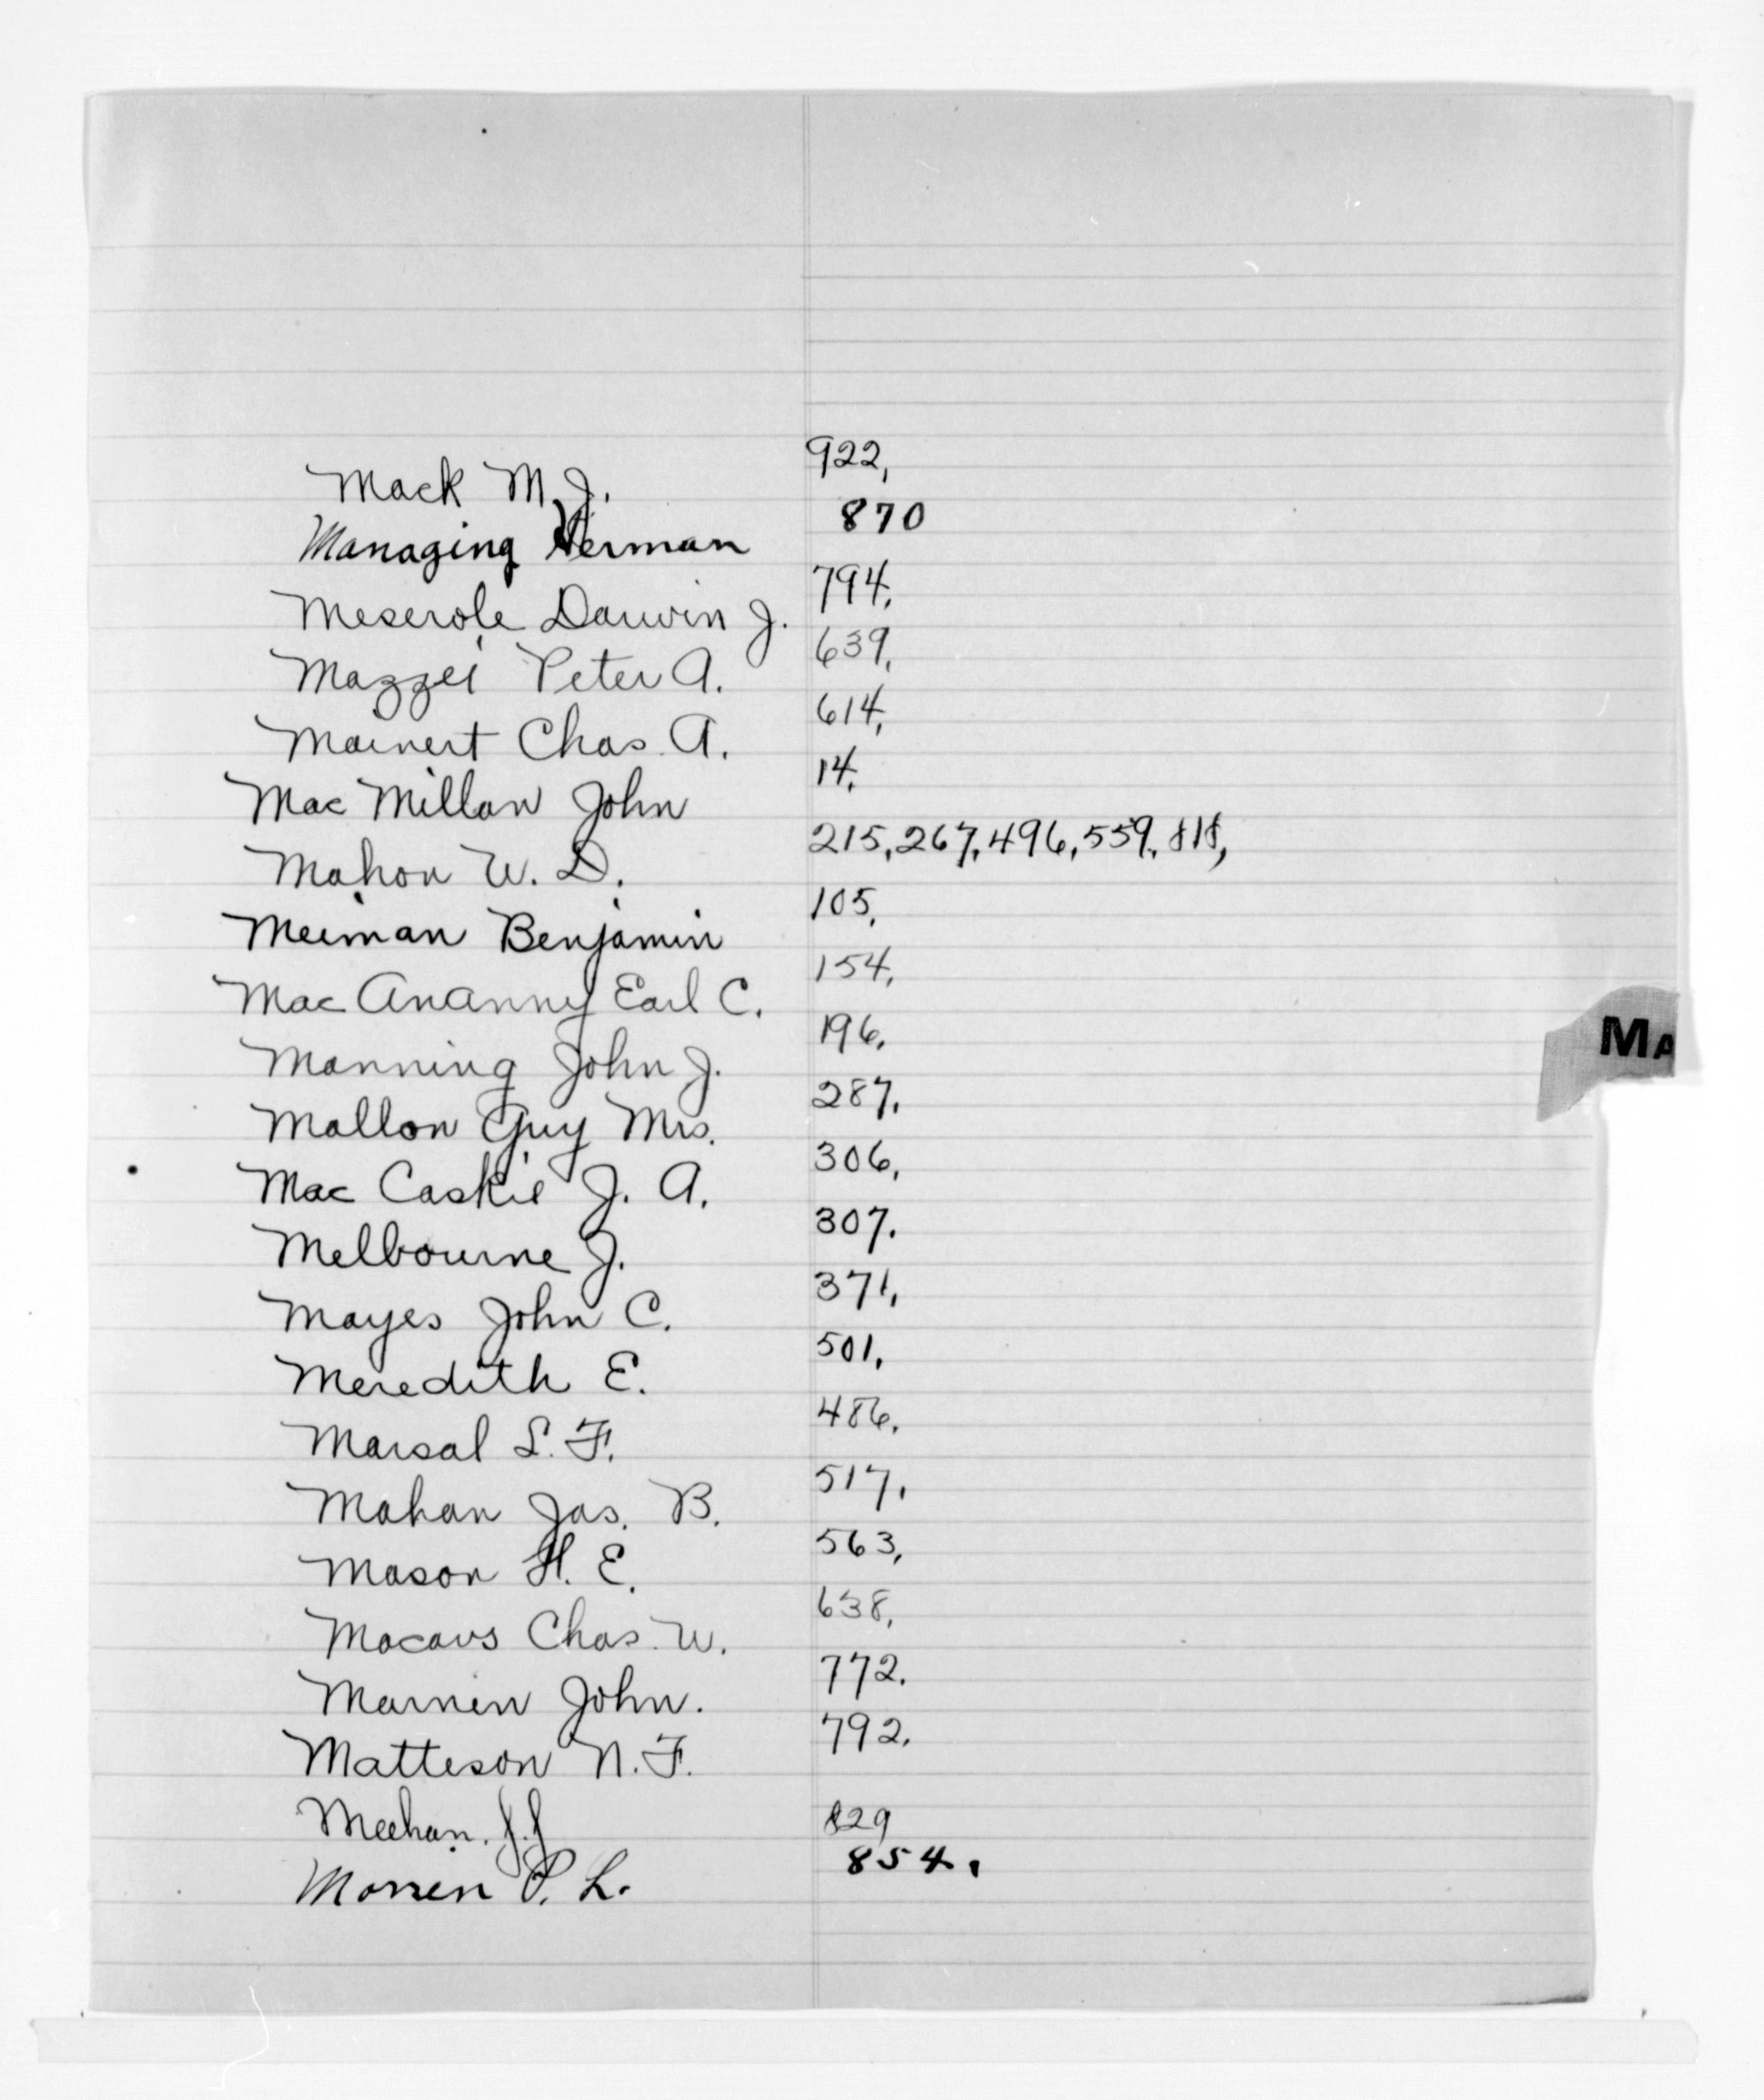 Mack M. J. 922,
Managing Herman 870
Meserole Darwin J. 794,
Mazzei Peter A. 639,
Mainert Chas. A. 614,
Mac Millan John 14,
Mahon W. D. 215, 267, 496, 559, 818,
Meiman Benjamin 105,
Mac Ananny Earl C. 154,
Manning John J. 196,
Mallon Guy Mrs. 287,
MA
Mac Caskie J. A. 306,
Melbourne J. 307.
Mayes John C. 371,
Meredith E. 501,
Marsal L. F. 486,
Mahan Jas. B. 517,
Mason H. E. 563,
Chas. W. 638,
John. 772.
Matteson N. F. 792.
Meehan. J. J 829
P. L. 854.